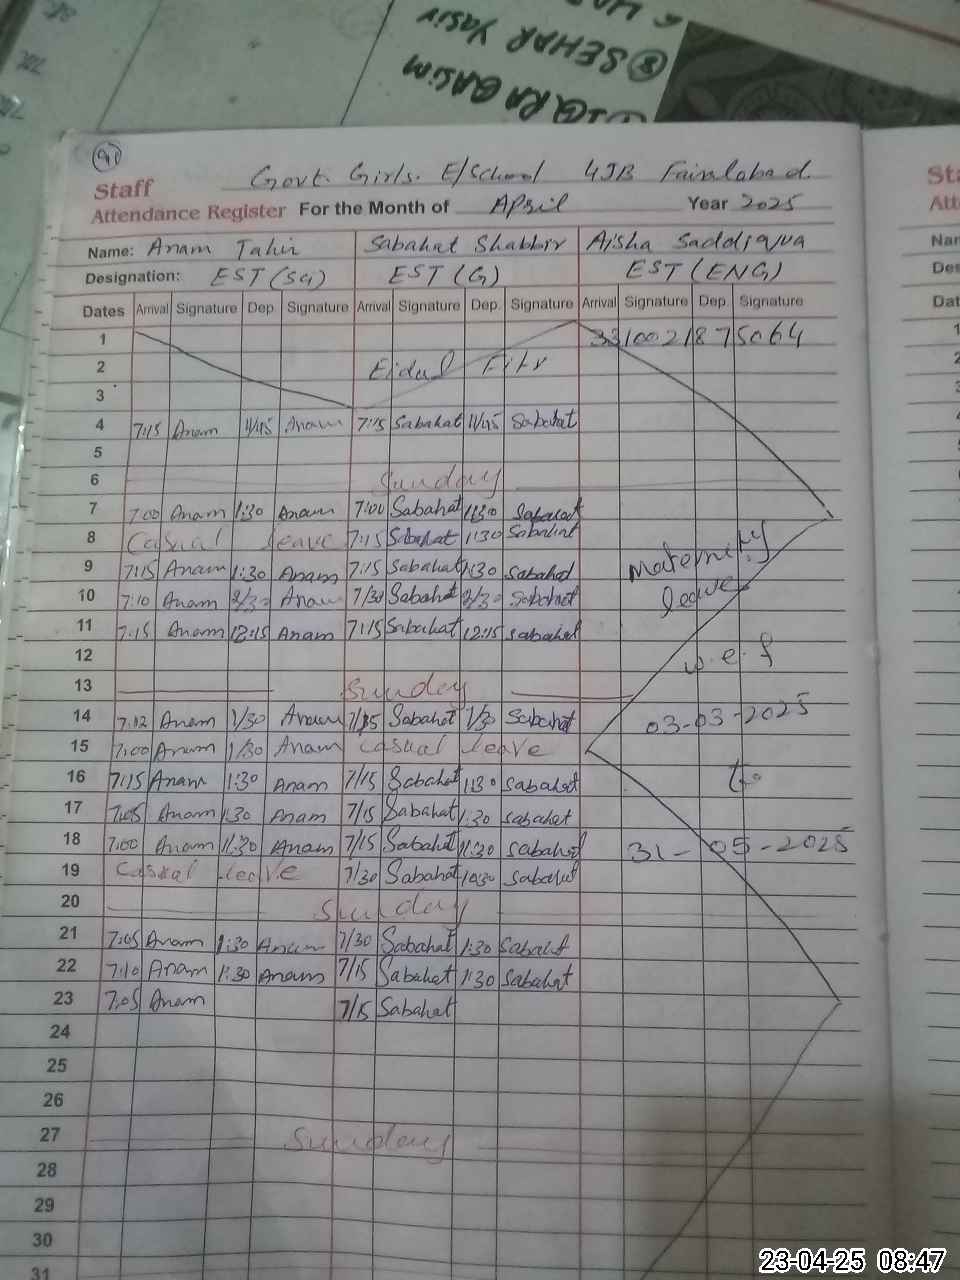 SEHAR Yasir
IQRA QASIM
Staff Govt. Girls. E/School 4JB Faisalabad.
Attendance Register For the Month of April Year 2025
Name: Anam Tahir Sabahat Shabbir Aisha
Designation: EST (SG) EST (G) EST (ENG)
Dates Arrival Signature Dep. Signature Arrival Signature Dep. Signature Arrival Signature Dep. Signature
1 3310021875064
2 Eidul Fitr
3
4 7:15 Anam 11/45 Anam 7:15 Sabahat 11/45 Sabahat
5
6 Sunday
7 7:00 Anam 1:30 Anam 7:00 Sabahat 1:30 Sabahat
8 Casual leave 7:15 Sabahat 1:30 Sabahat
9 7:15 Anam 1:30 Anam 7:15 Sabahat 1:30 Sabahat Maternity
10 7:10 Anam Anam 7/30 Sabahat Sabahat leave
11 7:15 Anam 12:15 Anam 7:15 Sabahat 12:15 Sabahat
12 w.e.f
13 Sunday
14 7:12 Anam 1/30 Anam 7/15 Sabahat 1/30 Sabahat 03-03-2025
15 7:00 Anam 1/30 Anam Casual leave
16 7:15 Anam 1:30 Anam 7/15 Sabahat 1:30 Sabahat to
17 7:05 Anam 1:30 Anam 7/15 Sabahat 1:30 Sabahat
18 7:00 Anam 11:30 Anam 7/15 Sabahat 11:30 Sabahat 31-05-2025
19 Casual leave 7/30 Sabahat 10:30 Sabahat
20 Sunday
21 7:05 Anam 1:30 Anam 7/30 Sabahat 1:30 Sabahat
22 7:10 Anam 1:30 Anam 7/15 Sabahat 1:30 Sabahat
23 7:05 Anam 7/15 Sabahat
24
25
26
27 Sunday
28
29
30
31
23-04-25 08:47